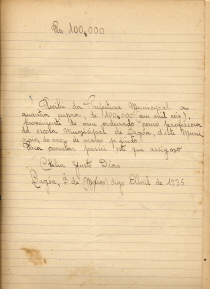 Rs 100,000
Recebi da Prefeitura Municipal a
quantia supra, de (100,000) cem mil réis),
proveniente de meu ordenado como professora
da escola Municipal de Lagôa, d'este Muni
do mez de
Para constar passei este que assigno
Justo Dias
Lagôa, 2 de Março digo Abril de 1935